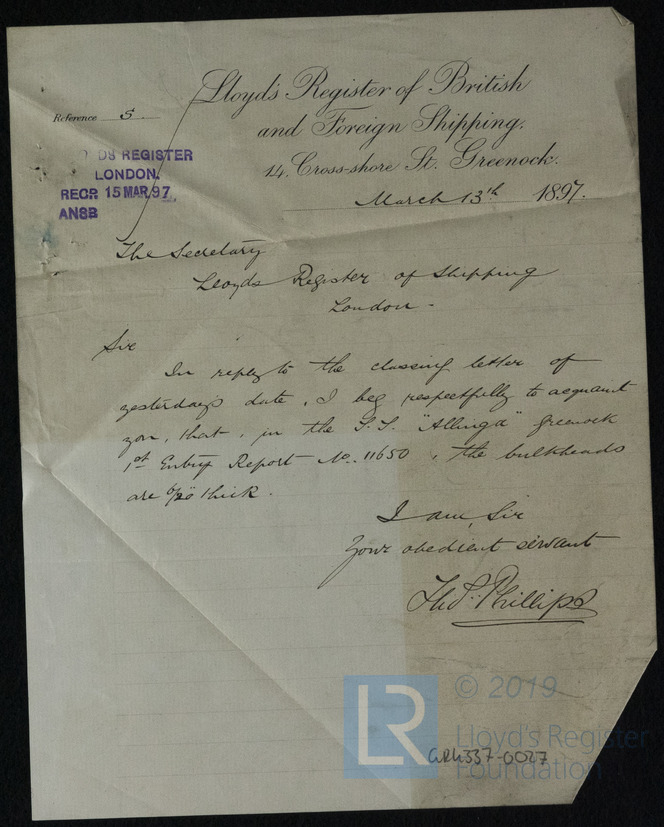 Lloyd's Register of British
and Foreign Shipping.
14, Cross-shore St. Greenock.
Reference 5
DS REGISTER
LONDON.
RECR 15 MAR. 97
ANSB
March 13th 1897.
The Secretary
Lloyds Register of Shipping
London -
Sir
In reply to the classing letter of
yesterday's date, I beg respectfully to acquaint
you, that, in the S.S. "Allinga" Greenock
1st Entry Report No. 11650, the bulkheads
are 6/20 thick.
I am, Sir
Your obedient servant
Thos. Phillips
© 2019
LR
Lloyd's Register
Foundation
GRK337-0027